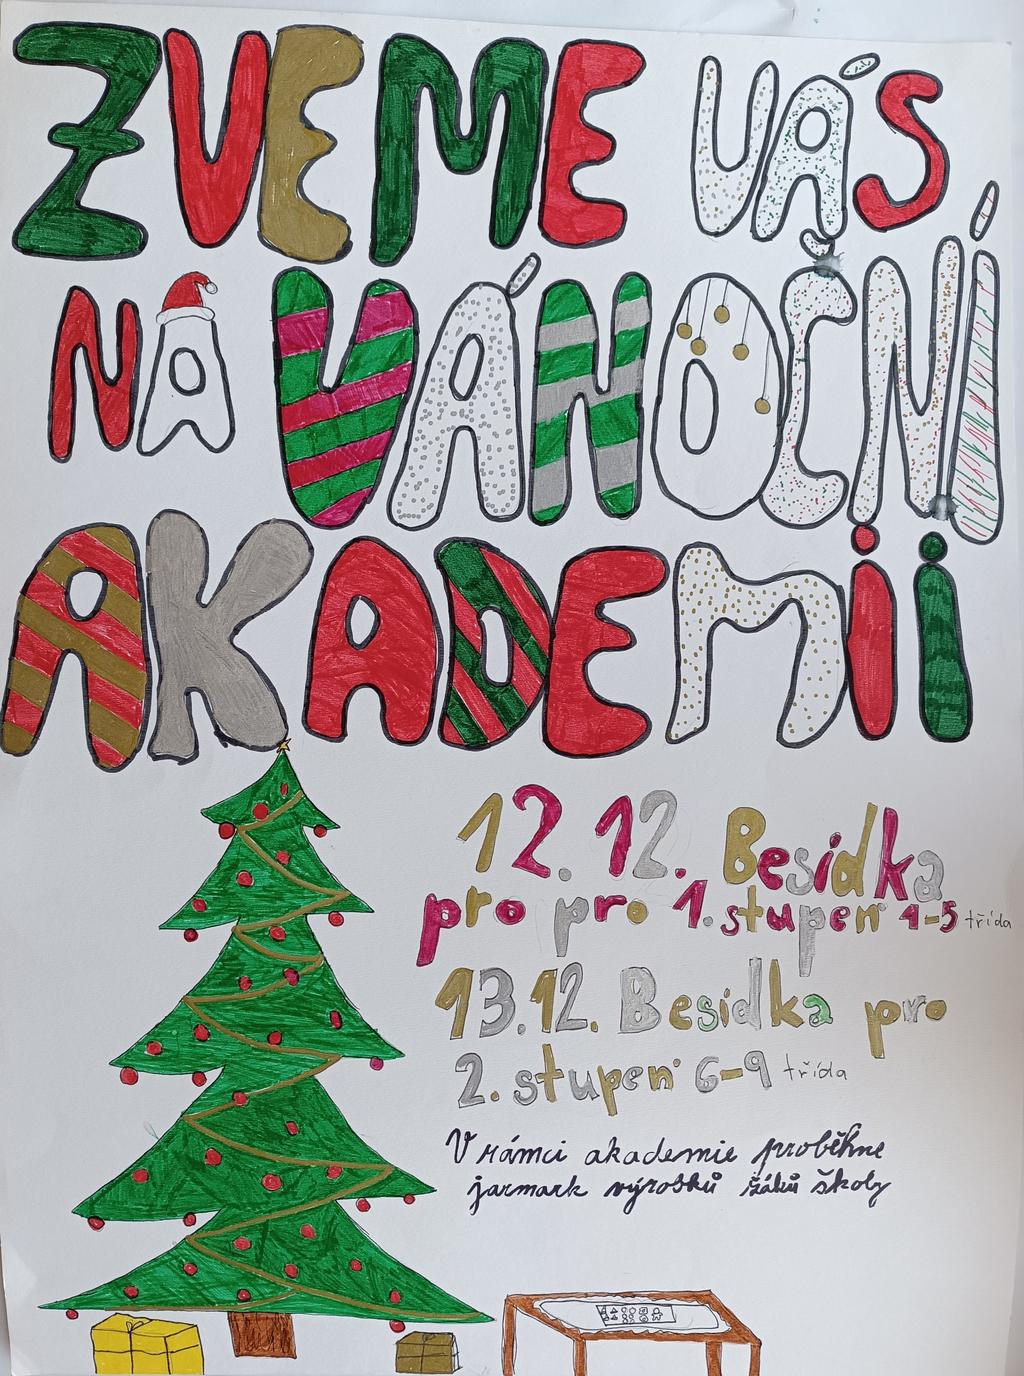 ZVEME VÁS
NA VÁNOČNÍ
AKADEMii
12. 12. Besídka
pro pro 1. stupeň 1-5 třída
13.12. Besídka pro
2. stupeň 6-9 třída
V rámci akademie proběhne
jarmark výrobků žáků školy